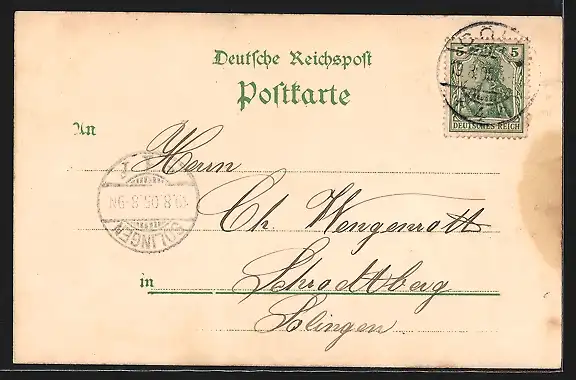 Deutsche Reichspost
Postkarte
5 5
DEUTSCHES REICH
An
Herrn
Ch. Wengenroth
in
Schrodtberg
Solingen
SOLINGEN
.8.05.8-9N